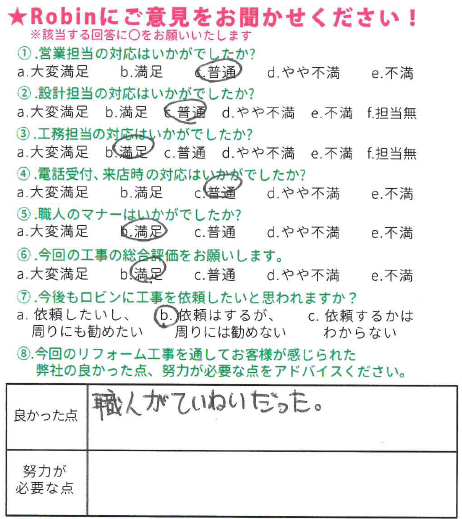 ★Robinにご意見をお聞かせください！
※該当する回答に〇をお願いいたします
①.営業担当の対応はいかがでしたか?
a.大変満足 b.満足 c.普通 d.やや不満 e.不満
②.設計担当の対応はいかがでしたか?
a.大変満足 b.満足 c.普通 d.やや不満 e.不満 f.担当無
③.工務担当の対応はいかがでしたか?
a.大変満足 b.満足 c.普通 d.やや不満 e.不満 f.担当無
④.電話受付、来店時の対応はいかがでしたか?
a.大変満足 b.満足 c.普通 d.やや不満 e.不満
⑤.職人のマナーはいかがでしたか?
a.大変満足 b.満足 c.普通 d.やや不満 e.不満
⑥.今回の工事の総合評価をお願いします。
a.大変満足 b.満足 c.普通 d.やや不満 e.不満
⑦.今後もロビンに工事を依頼したいと思われますか？
a. 依頼したいし、 b. 依頼はするが、 c. 依頼するかは
周りにも勧めたい 周りには勧めない わからない
⑧.今回のリフォーム工事を通してお客様が感じられた
弊社の良かった点、努力が必要な点をアドバイスください。
良かった点 職人がていねいだった。
努力が
必要な点